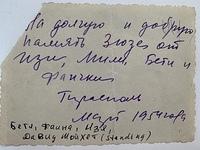 На долгую и добрую
память Зюзе от
Изи, Мили, Бети и
Фанички
Тирасполь
Март 1954 года
Бетя, Фаина, Изя,
Давид Мойхет (standing)